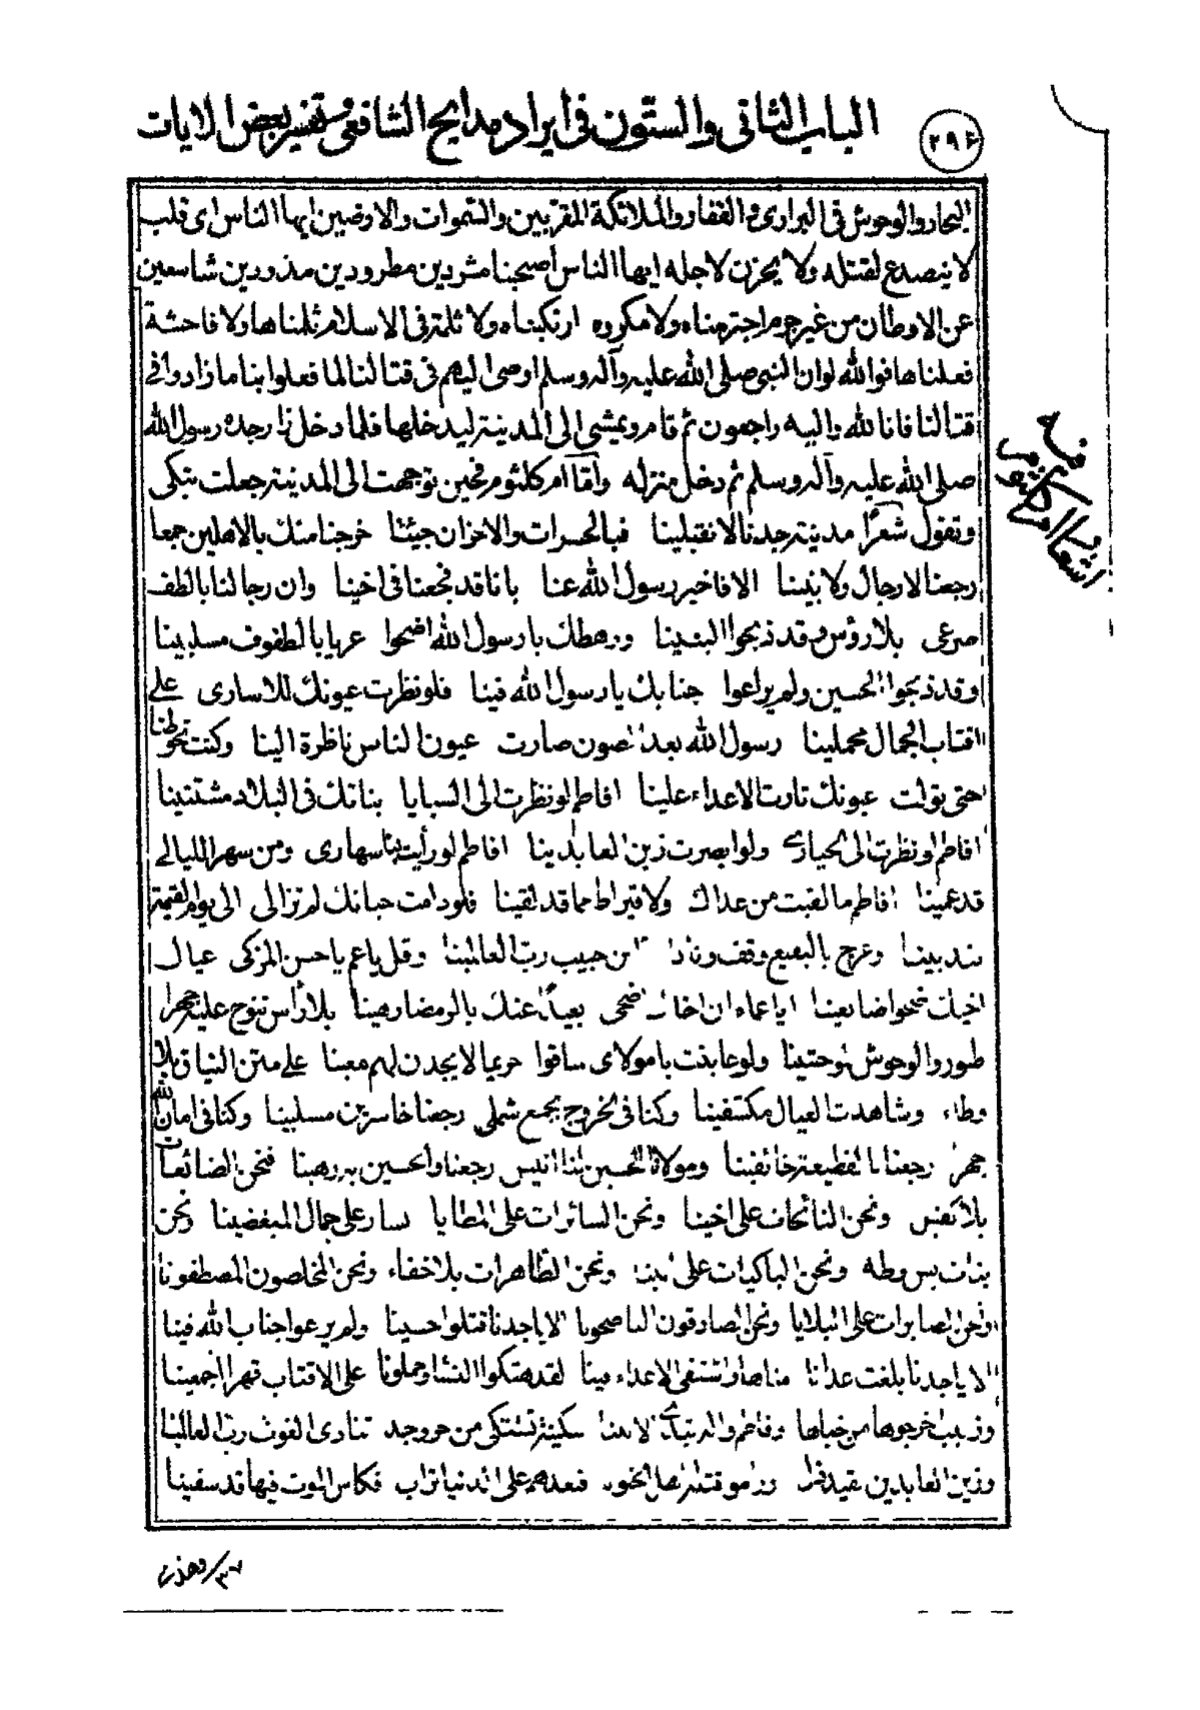 الباب الثانى والستون فى ايراد مدايح الشافعى وتفسير بعض الايات
٢٩٤
البحار والوحوش فى البرارى و القفار والملائكة المقربين والسموات والارضين ايها الناس اى قلب
لا ينصدع لقتله ولا يحزن لاجله ايها الناس اصبحنا مشردين مطرودين مذودين شاسعين
عن الاوطان من غير جرم اجترمناه ولا مكروه ارتكبناه ولا ثلمة فى الاسلام ثلمناها ولا فاحشة
فعلناها فوالله لو ان النبى صلى الله عليه وآله وسلم اوصى اليهم فى قتالنا لما فعلوا بنا ما زادوا فى
قتالنا فانا لله واليه راجعون ثم قام ويمشى الى المدينة ليدخلها فلما دخل زار جده رسول الله
صلى الله عليه وآله وسلم ثم دخل منزله واما ام كلثوم فحين توجهت الى المدينة جعلت تبكى
وتقول شعرًا مدينة جدنا لا تقبلينا فبالحسرات والاحزان جيئنا خرجنا منك بالاهلين جمعا
رجعنا لا رجال ولا بنينا الا فاخبر رسول الله عنا بانا قد فجعنا فى اخينا وان رجالنا بالطف
صرعى بلا رؤس وقد ذبحوا البنينا ورهطك يا رسول الله اضحوا عرايا بالطفوف مسلبينا
وقد ذبحوا الحسين ولم يراعوا جنابك يا رسول الله فينا فلو نظرت عيونك للاسارى على
اقتاب الجمال محملينا رسول الله بعد الصون صارت عيون الناس ناظرة الينا وكنت تحوطنا
حتى تولت عيونك ثارت الاعداء علينا افاطم لو نظرت الى السبايا بناتك فى البلاد مشتتينا
افاطم لو نظرت الى الحيارى ولو ابصرت زين العابدينا افاطم لو رأيتنا سهارى ومن سهر الليالى
قد عمينا افاطم ما لقيت من عداك ولا قيراط مما قد لقينا فلو دامت حياتك لم تزالى الى يوم القيمة
تندبينا وعرج بالبقيع وقف وناد ابن حبيب رب العالمينا وقل يا عم يا حسن المزكى عيال
اخيك اضحوا ضايعينا ايا عماه ان اخاك اضحى بعيدًا عنك بالرمضا رهينا بلا رأس تنوح عليه جهرا
طيور والوحوش الموحشينا ولو عاينت يا مولاى ساقوا حريما لا يجدن لهم معينا على متن النياق بلا
وطاء وشاهدت العيال مكشفينا وكنا فى الخروج بجمع شمل رجعنا خاسرين مسلبينا وكنا فى امان الله
جهرا رجعنا بالقطيعة خائفينا ومولانا الحسين لنا انيس رجعنا والحسين به رهينا فنحن الضائعات
بلا كفيل ونحن النائحات على اخينا ونحن السائرات على المطايا نسار على جمال المبغضينا ونحن
بنات يس وطه ونحن الباكيات على ابينا ونحن الطاهرات بلا خفاء ونحن المخلصون المصطفونا
ونحن الصابرات على البلايا ونحن الصادقون الناصحونا الا يا جدنا قتلوا حسينا ولم يرعوا جناب الله فينا
الا يا جدنا بلغت عدانا مناها واشتفى الاعداء فينا لقد هتكوا النساء وحملونا على الاقتاب قهرا اجمعينا
وزينب اخرجوها من خباها وفاطم والهة تبدى الانينا سكينة تشتكى من حر وجد تنادى الغوث رب العالمينا
وزين العابدين بقيد ذل وراموا قتله اهل الخؤنا فبعدهم على الدنيا تراب فكاس الموت فيها قد سقينا
اشعار ام كلثوم